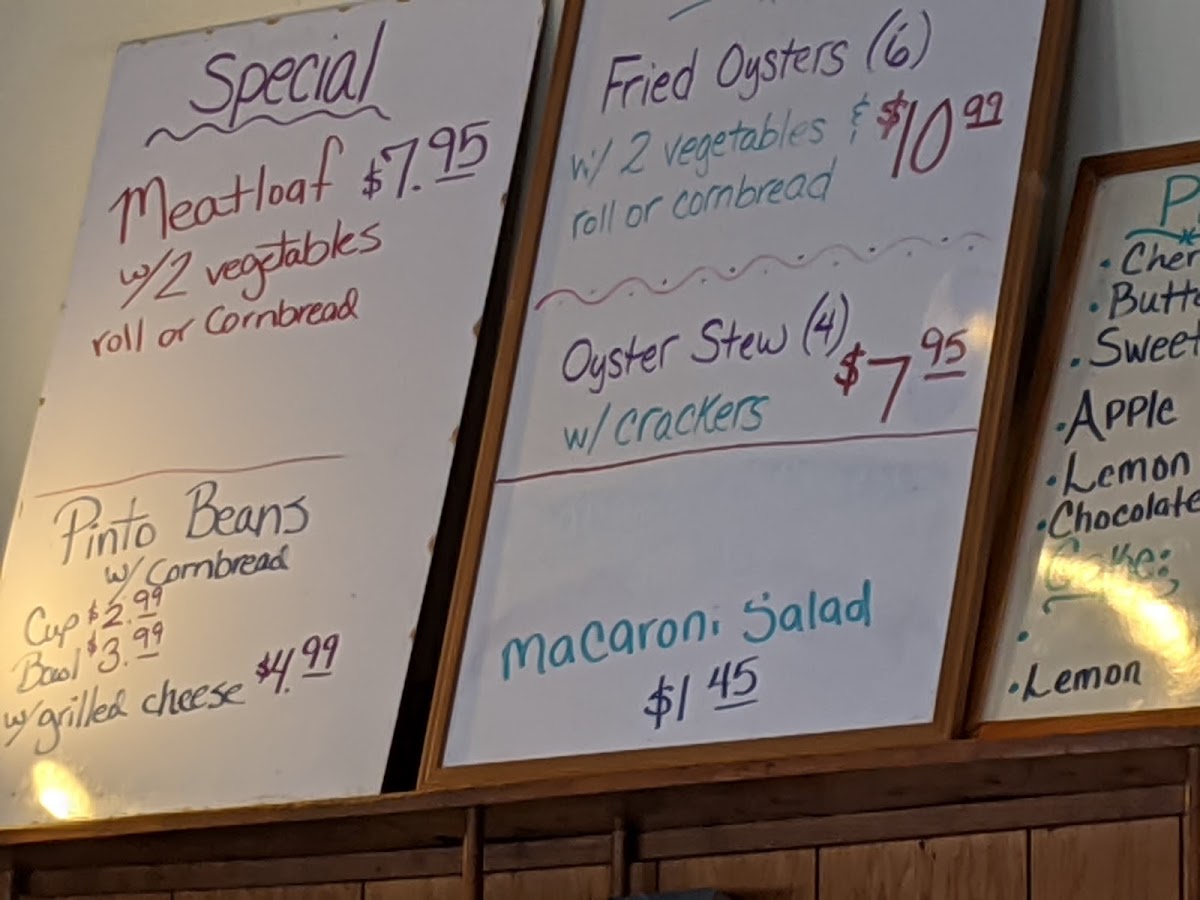 Special
Meatloaf $7.95
w/2 vegetables
roll or Cornbread
Pinto Beans
w/ Cornbread
Cup $2.99
Bowl $3.99
w/grilled cheese $4.99
Fried Oysters (6)
w/ 2 vegetables & $10 99
roll or cornbread
Oyster Stew (4)
$7 95
w/ crackers
Macaroni Salad
$1 45
P
• Cher
• Butt
• Sweet
• Apple
• Lemon
• Chocolate
Cake:
•
• Lemon